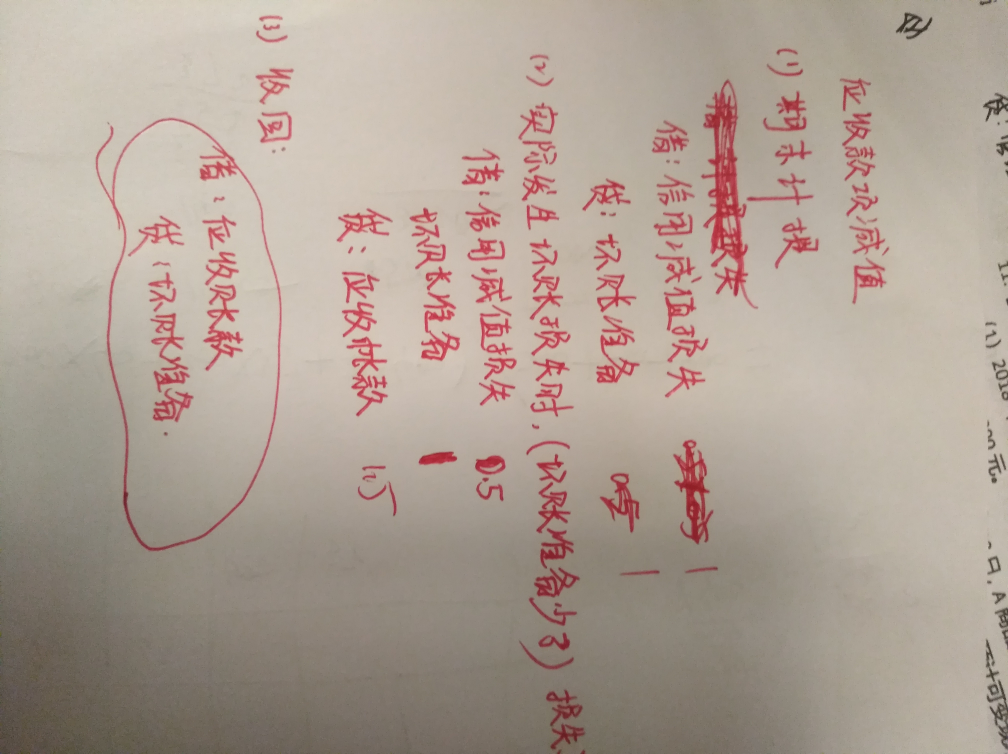 应收款项减值
(1) 期末计提
借:信用减值损失 1
贷:坏账准备 1
(2) 实际发生坏账损失时,(坏账准备少了) 损失
借:信用减值损失 0.5
坏账准备 1
贷:应收帐款 1.5
(3) 收回:
借:应收账款
贷:坏账准备.
贷:
(1) 2018
元。